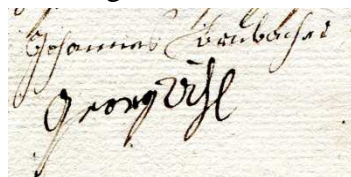 Johannes Brubacher
Georg Uhl